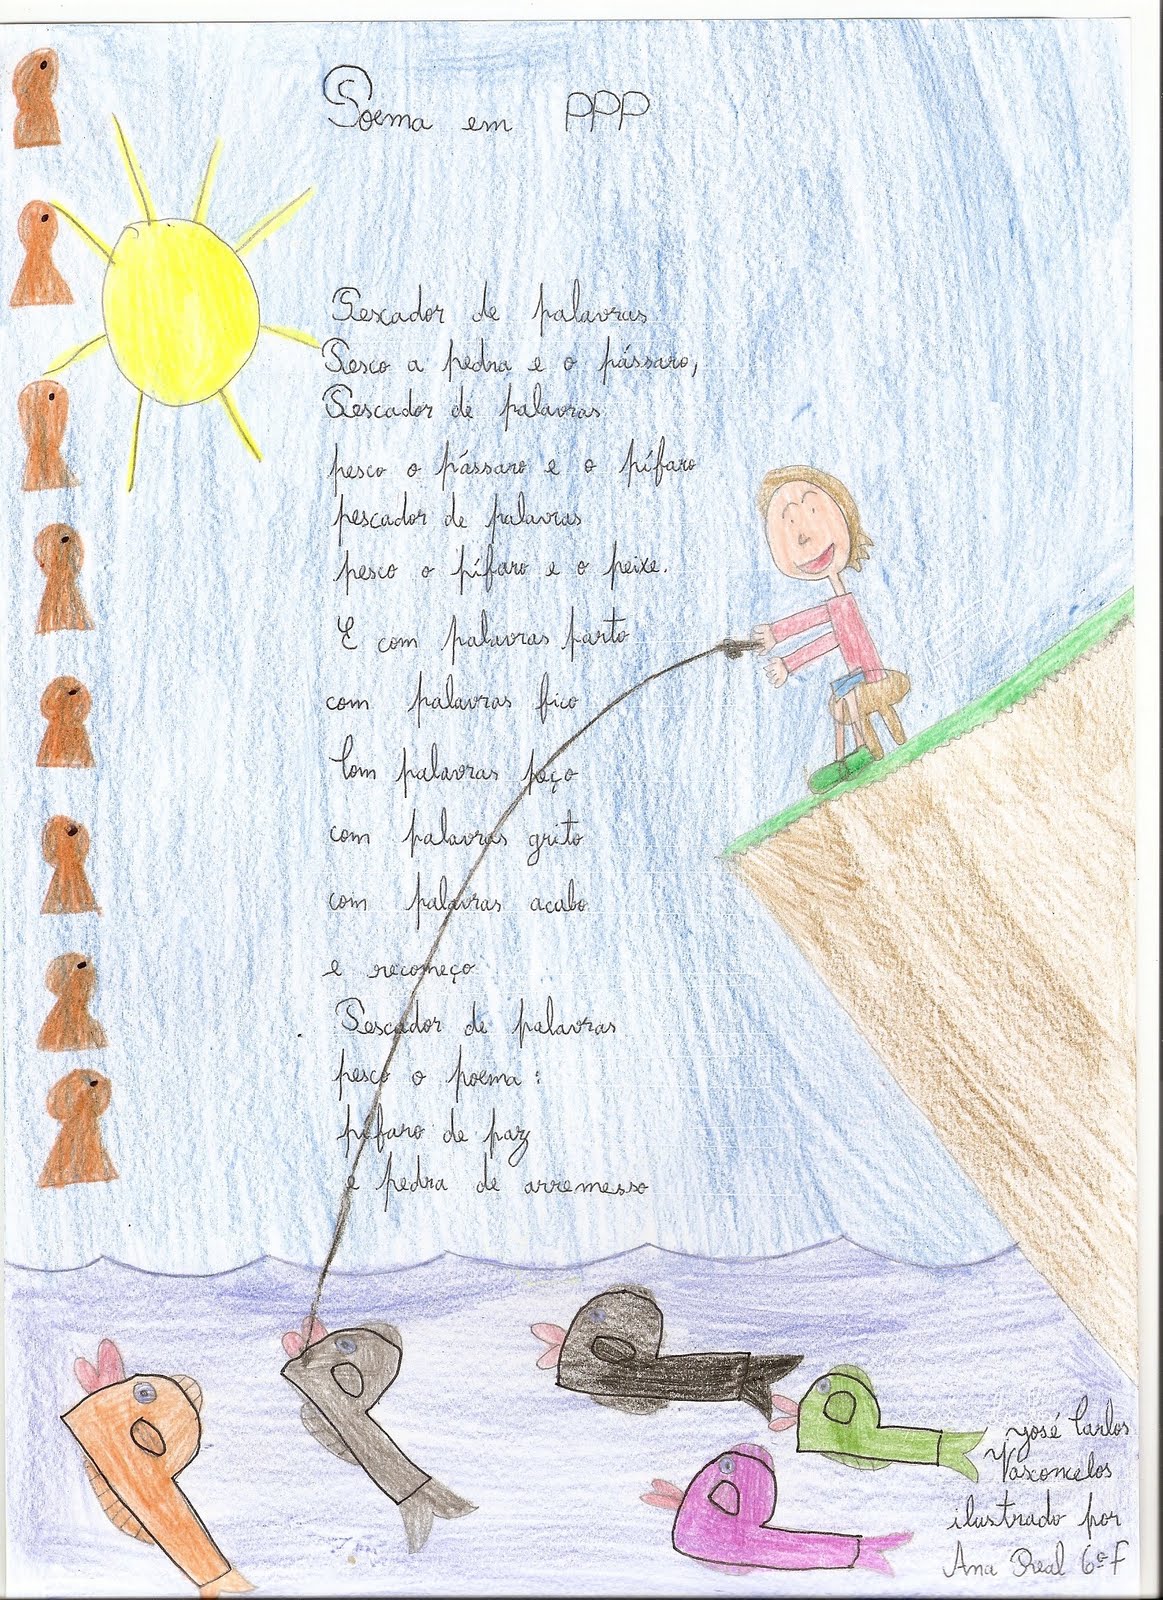 Poema em PPP
Pescador de palavras
Pesco a pedra e o pássaro,
Pescador de palavras
pesco o pássaro e o pífaro
pescador de palavras
pesco o pífaro e o peixe.
E com palavras parto
com palavras fico
Com palavras peço
com palavras grito
com palavras acabo
e recomeço
Pescador de palavras
pesco o poema:
pífaro de paz
e pedra de arremesso
José Carlos
Vasconcelos
ilustrado por
Ana Real 6ºF